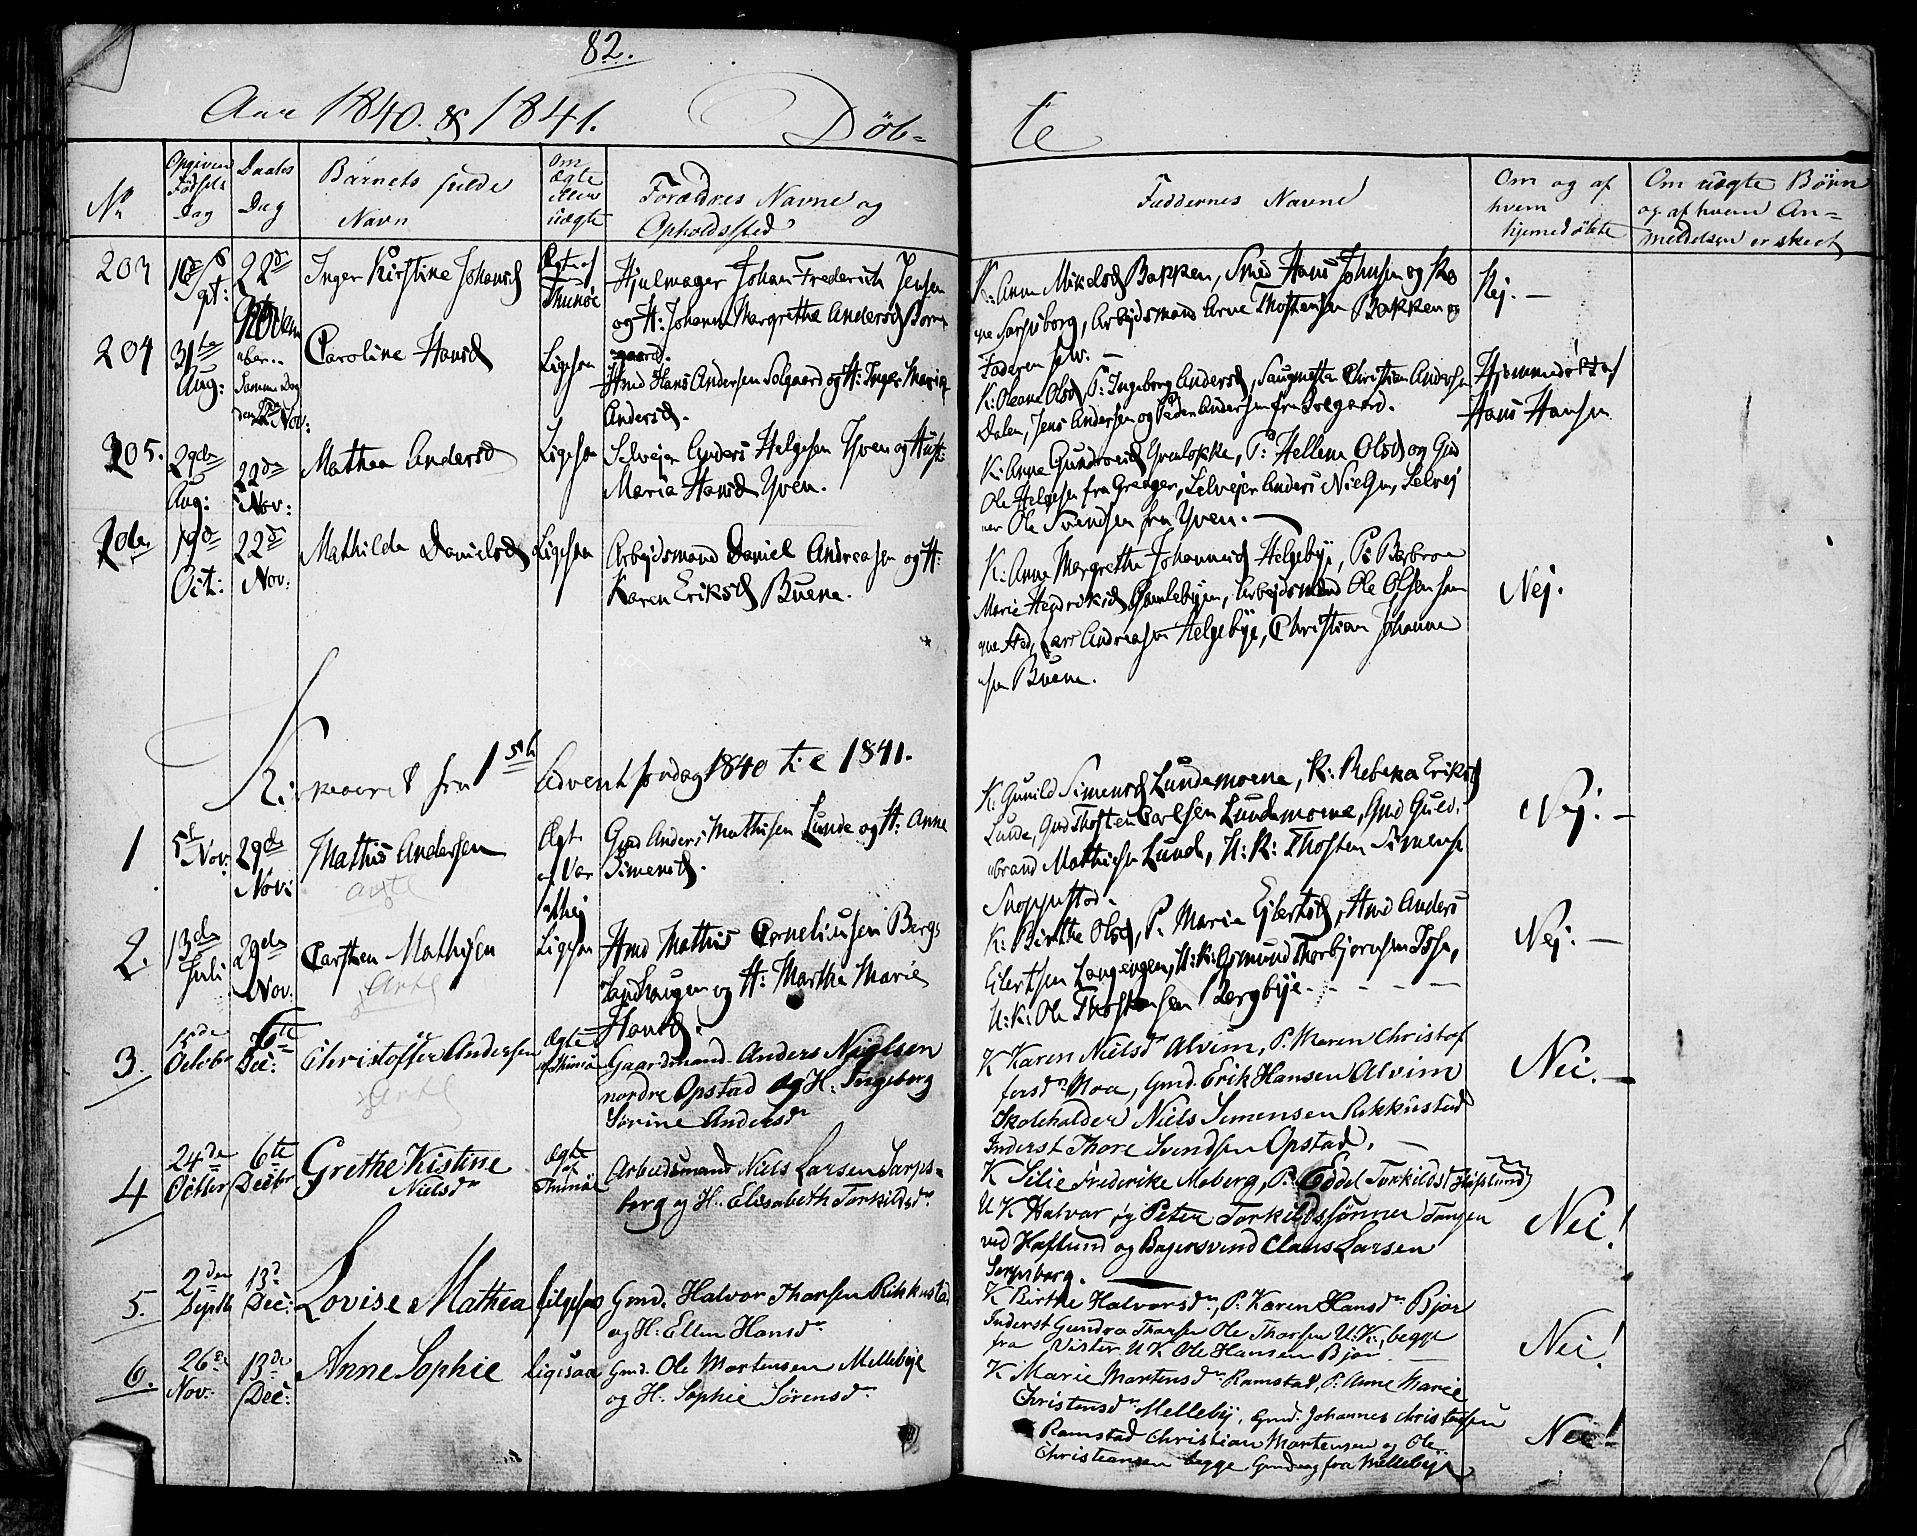 82.
Aar 1840 & 1841. Døb- te
No
Opgiven Fødsels Dag
Daabs Dag
Barnets fulde Navn
Om ægte eller uægte
Forældres Navne og Opholdssted
Faddernes Navne
Om og af hvem hjemedøbte
Om uægte Børn og af hvem Anmeldelsen er skeet
203
Sept:
22de Novem ber
Inger Kirstine Johansd
Ægte af Thunøe
Hjulmager Johan Frederich Jensen
og H: Johanne Margrethe Andersd Borregaard.
K: Anne Mikelsd Bakken, Smed Hans Johnsen og Ko
ne Sarpsborg, Arbejdsmand Arne Thostensen Bakken og
Faderen selv. —
Nej. —
204
31te Aug:
Samme Dag den 22 Nov:
Caroline Hansd
Ligesaa
Hmd Hans Andersen Solgaard og H: Inger Maria
Andersd.
K: Oleane Olsd, P: Ingeborg Andersd, Saugmester Christian Andersen
Dalen, Jens Andersen og Peder Andersen fra Solgaard.
Hjemmedøbt af
Hans Hansen
205.
29de Aug:
22de Nov:
Mathea Andersd
Ligesaa
Selvejer Anders Helgesen Yven og Hust:
Maria Hansd Yven.
K: Anne Gundersd Grålokke, P: Hellene Olsd og Gmd
Ole Helgesen fra Greager, Selvejer Anders Nielsen, Selvej
er Ole Svendsen fra Yven. —
206
19de Oct:
22de Nov:
Mathilde Danielsd
Ligesaa
Arbejdsmand Daniel Andreasen og H:
Karen Eriksd Buene.
K: Anne Margrethe Johannesd Helgebye, P: Barbroe
Marie Hendriksd Gamlebyen, Arbejdsmand Ole Olsen sam
me Sted, Lars Andreasen Helgebye, Christian Johanne
sen Buene.
Nej.
Kirkeaaret fra 1ste Advent søndag 1840 til 1841.
1
5te Nov:
29de Nov:
Mathis Andersen
Ægte af Var
Gmd Anders Mathisen Lunde og H: Anne
Simensd.
K: Gunild Simensd Lundemoene, K: Rebeka Eriksd
Lunde, Gmd Thosten Carlsen Lundemoene, Gmd Guld
brand Mathisen Lunde, U:K: Thosten Simensen
Snoppestad.
Nej. —
2.
13de Juli
29de Nov:
Carsten Mathisen
Ligesaa
Hmd Mathis Corneliusen Bergs
Landhaugen og H: Marthe Marie
Hansd.
K: Birthe Olsd, P. Maria Eilertsd, Hmd Anders
Eilertsen Langengen, U:K: Gomund Thorbjornsen Isse,
U:K: Ole Thostensen Bergbye. - - - -
Nej. —
3.
15de October
6te Dec:
Christoffer Andersen
Ægte af Thunøe
Gaardmand Anders Nielsen
nordre Opstad og H: Ingeborg
Sørine Andersdr
K Karen Nielsdr Alvim, P. Maren Christof
fersdr Moa, Gmd. Erik Hansen Alvim
Skoleholder Niels Simensen Rikkustad
Inderst Thore Svendsen Opstad. —
Nei. —
4
24de Octbr
6te Decbr
Grethe Kistine
Nielsdr
Ægte af Thunøe
Arbeidsmand Niels Larsen Sarps-
borg og H. Elisabeth Torkildsdr
K Silie Frederike Moberg, P. Eddel Torkilds (Haflund)
U K Halvor og Peter Torkildssønner Tangen
ved Haflund og Bagersvend Claus Larsen
Sarpsborg.
Nei!
5.
2den Septb
13de Dec:
Lovise Mathea
Ligesaa
Gmd. Halvor Thorsen Rikkustad
og H: Ellen Hansdr
K Birthe Halvorsdr, P: Karen Hansdr Bjør
Inderst Gundro Thorsen Ole Thorsen U.K., begge
fra Vister U K Ole Hansen Bjør. —
Nei!
6.
26de Nov:
13de Dec:
Anne Sophie
Ligesaa
Gmd. Ole Mortensen Mellebye
og H. Sophie Sørensdr
K Marie Mortensdr Ramstad, P. Anne Marie
Christensdr Melleby, Gmd. Johannes Christensen
Ramstad Christian Mortensen og Ole
Christiansen begge Gmd og fra Mellebye
Nei!